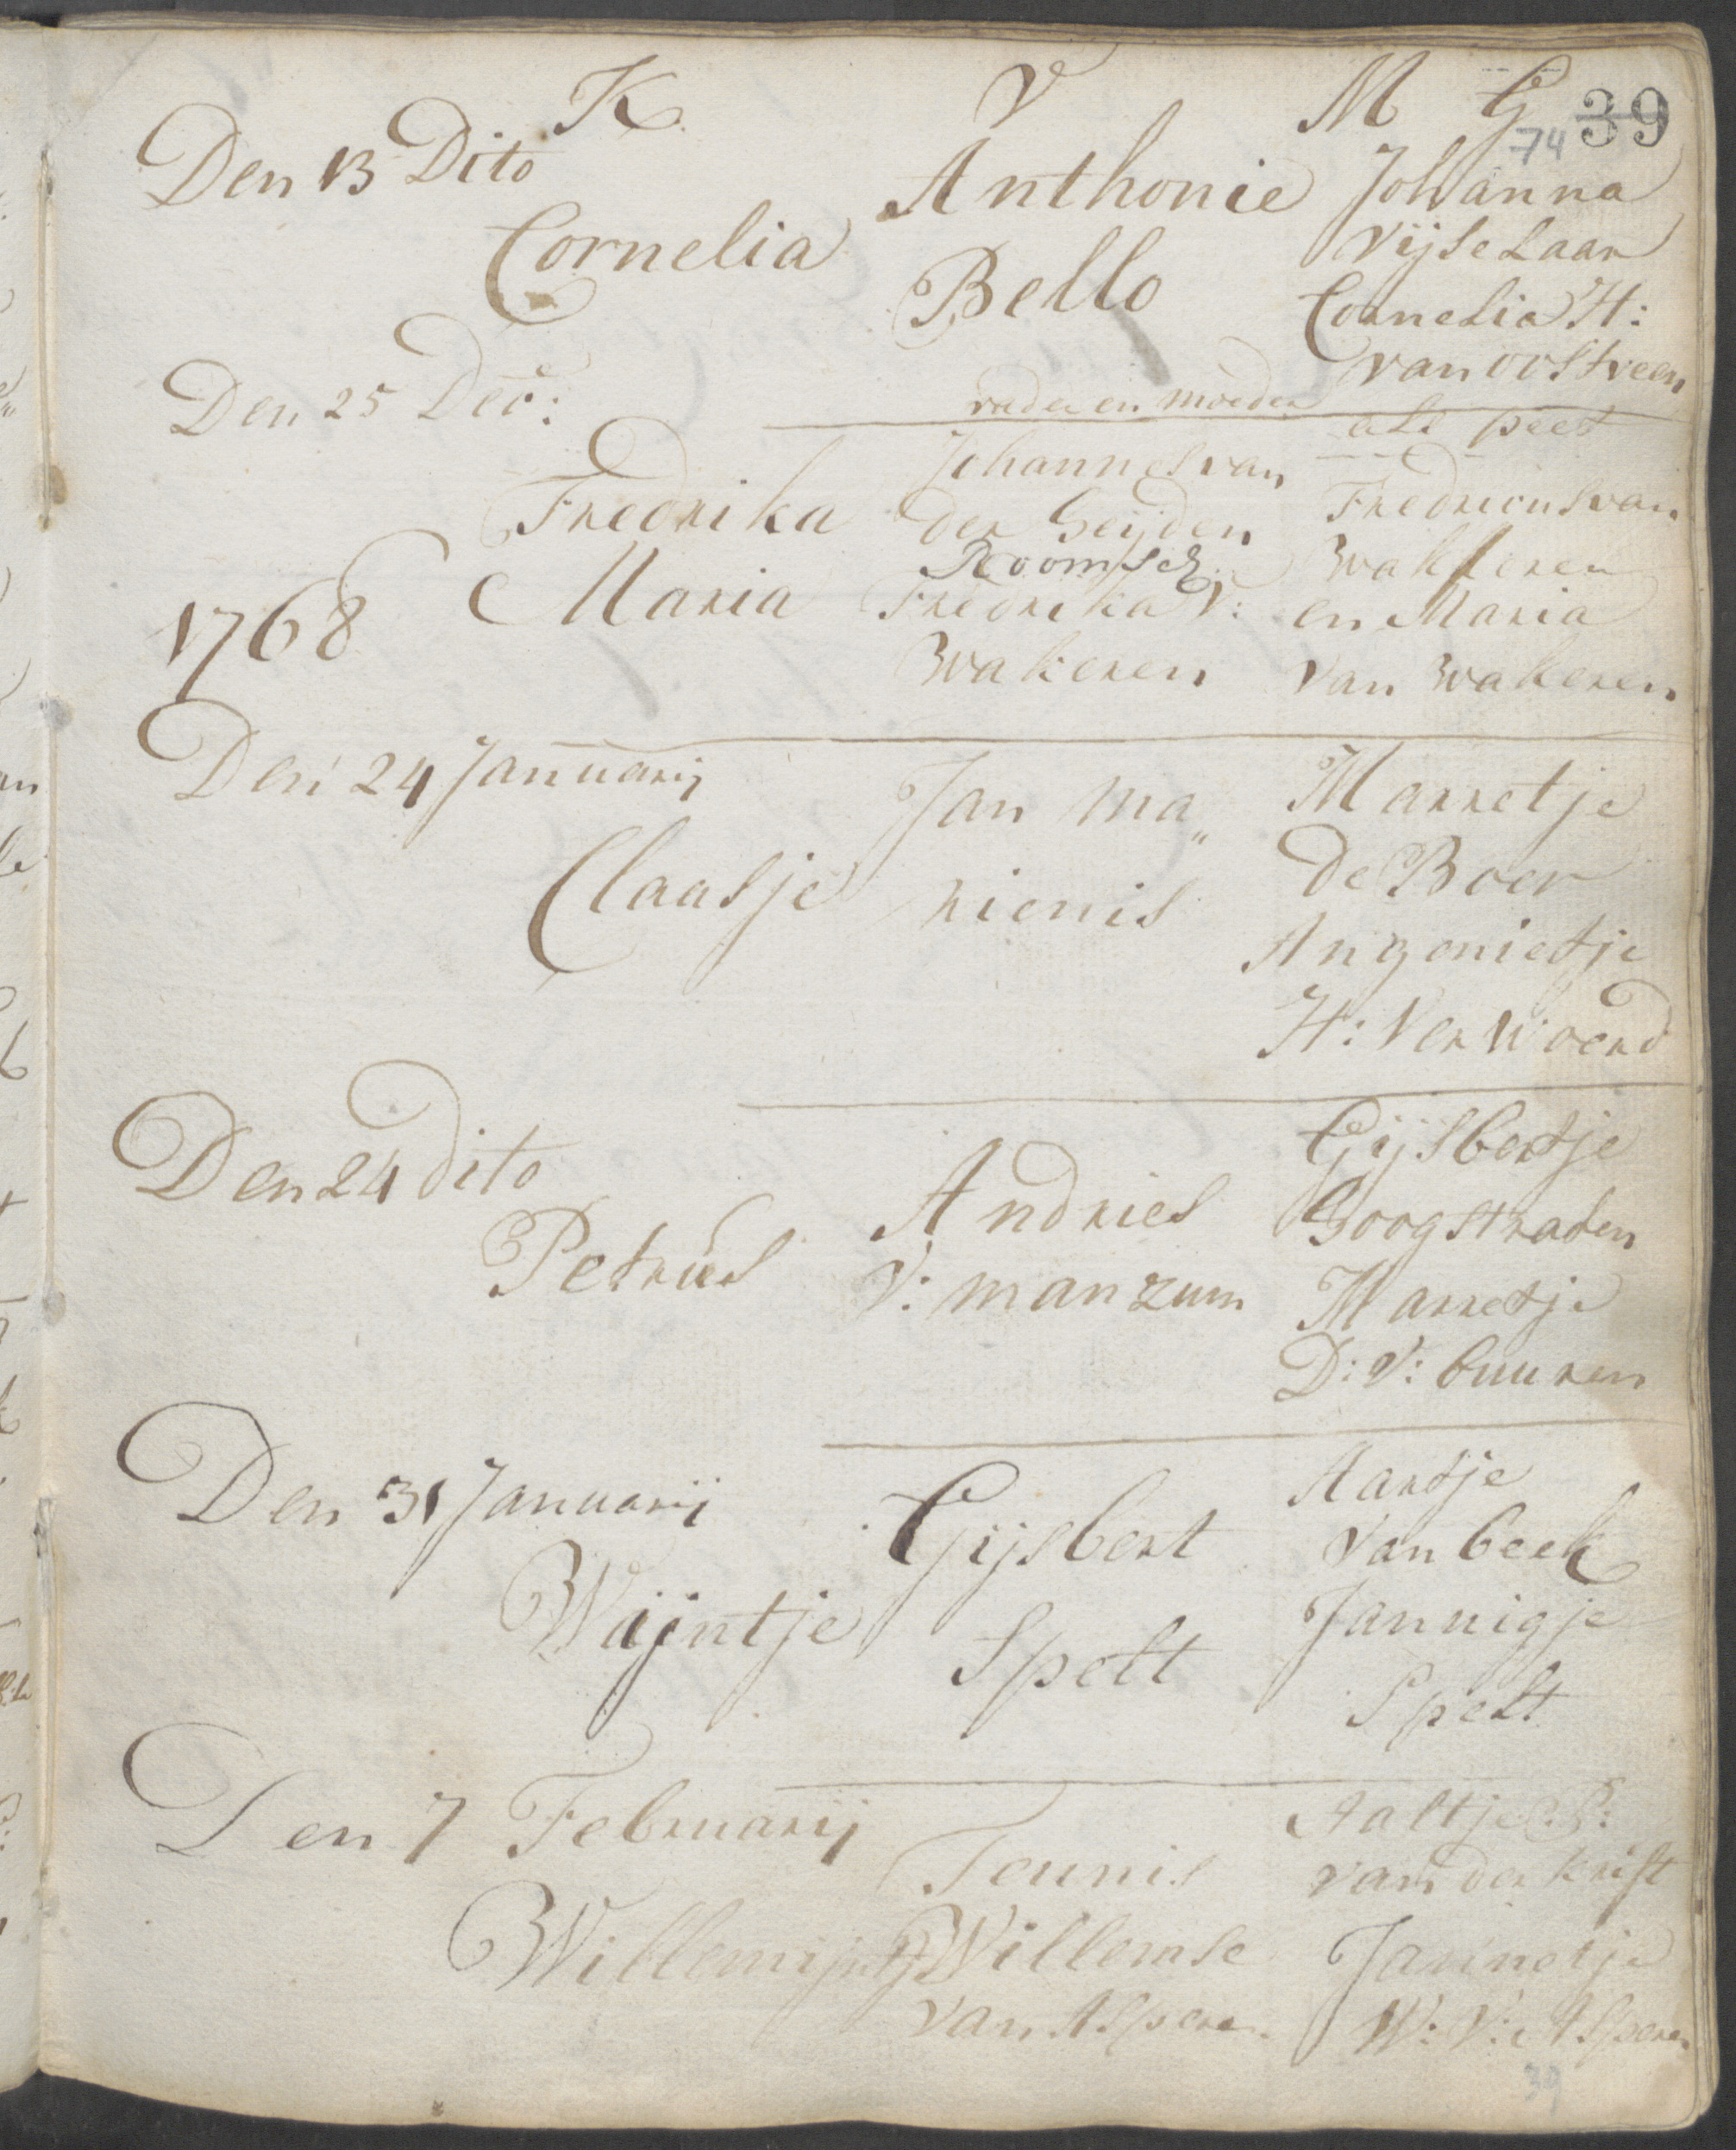 K V M G 39
74
Den 13 Dito
Cornelia
Anthonie
Bello
Johanna
Vijselaar
Cornelia H:
van oostveen
Den 25 Dec:
vader en moeder
als peet
Fredrika
Maria
Johannes van
der heijden
Roomsch
Fredrika V:
Wakeren
Fredricus van
Wakkeren
en Maria
van Wakeren
1768
Den 24 Januarij
Claasje
Jan Ma„
rienis
Marretje
de Boer
Angenietje
H: Verwoerd
Den 24 Dito
Petrus
Andries
V: manzum
Gijsbertje
Hoogstraten
Marretje
D: V: buuren
Den 31 Januarij
Wijntje
Gijsbert
Spelt
Aartje
van beek
Jannigje
Spelt
Den 7 Februarij
Willemijntje
Teunis
Willemse
van Asperen
Aaltje P:
van der krift
Jannetje
W: V: Asperen
39